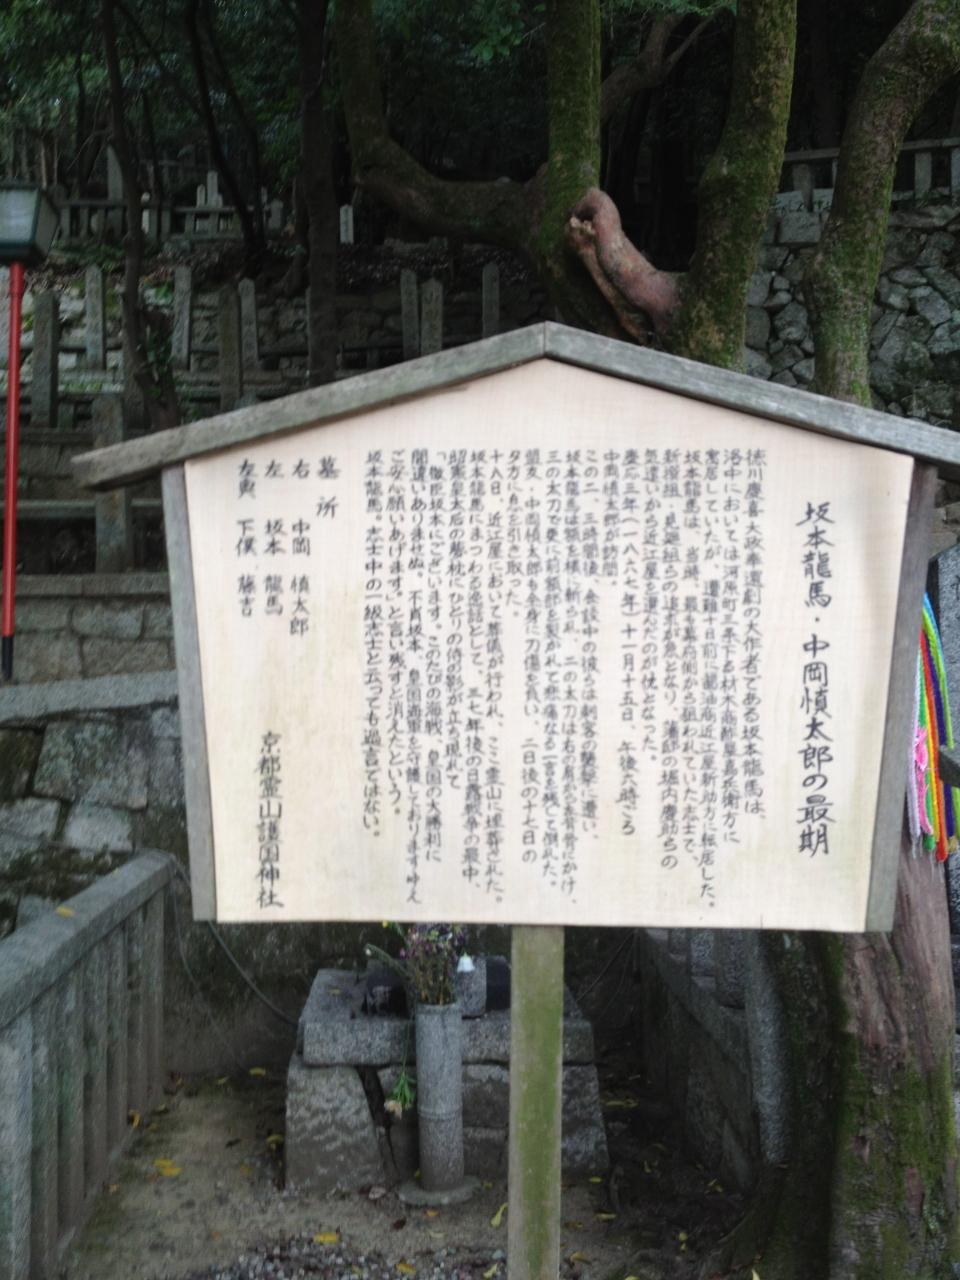 坂本龍馬・中岡慎太郎の最期
徳川慶喜大政奉還劇の大作者である坂本龍馬は、
洛中においては河原町三条下る材木商酢屋嘉兵衛方に
寓居していたが、遭難十日前に醤油商近江屋新助方に転居した。
坂本龍馬は、当時、最も幕府側から狙われていた志士で、
新撰組・見廻組らの追求が急となり、藩邸の堀内慶助らの
気遣いから近江屋を選んだのが仇となった。
慶応三年(一八六七年)十一月十五日、午後六時ごろ
中岡慎太郎が訪問、
この二、三時間後、会談中の彼らは刺客の襲撃に遭い、
坂本龍馬は額を横に斬られ、二の太刀は右の肩から左背骨にかけ、
三の太刀で更に前額部を裂かれて悲痛なる一言を残して倒れた。
盟友・中岡慎太郎も全身に刀傷を負い、二日後の十七日の
夕方に息を引き取った。
十八日、近江屋において葬儀が行われ、ここ霊山に埋葬された。
坂本龍馬にまつわる逸話として、三七年後の日露戦争の最中、
昭憲皇太后の夢枕にひとりの侍の影が立ち現れて
「微臣坂本にございます。このたびの海戦、皇国の大勝利に
間違いありませぬ。不肖坂本、皇国海軍を守護しておりますゆえ
ご安心願いあげます。」と言い残すと消えたという。
坂本龍馬。志士中の一級志士と云っても過言ではない。
墓所
右 中岡 慎太郎
左 坂本 龍馬
左奥 下僕 藤吉
京都霊山護国神社